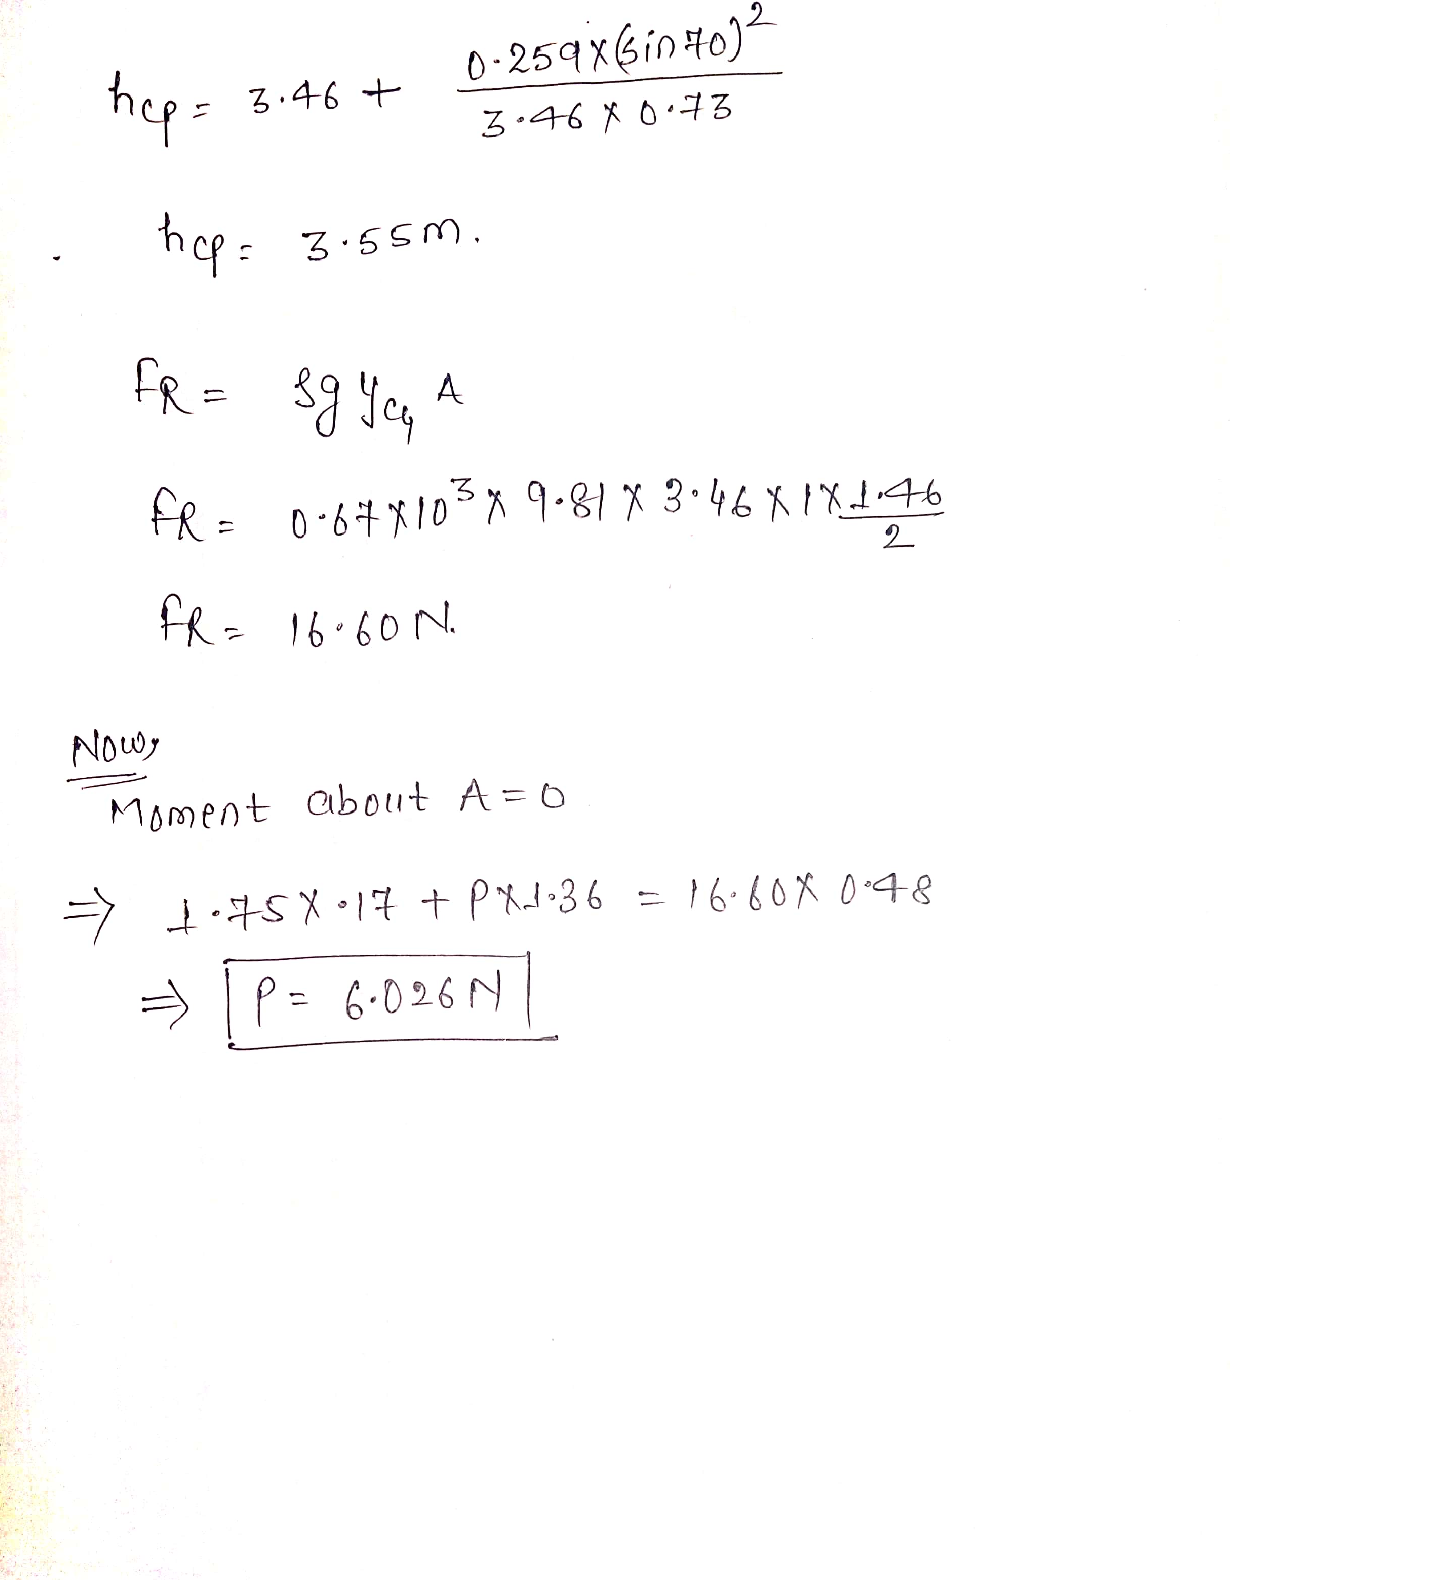 hcp = 3.46 + 0.259×(sin70)² / 3.46 × 0.73
hcp = 3.55m.
FR = ρg ycg A
FR = 0.67×10³ × 9.81 × 3.46 × 1 × 1.46/2
FR = 16.60 N.
Now,
Moment about A = 0
⇒ 1.75 × .17 + P×1.36 = 16.60× 0.48
⇒ P = 6.026 N